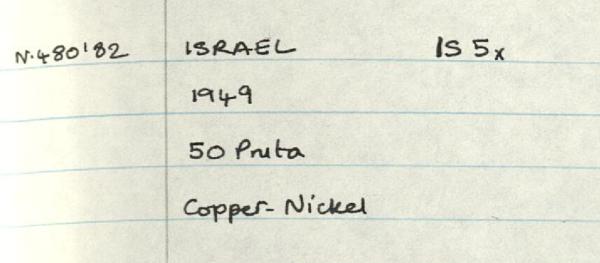 N.480'82 ISRAEL IS 5x
1949
50 Pruta
Copper-Nickel